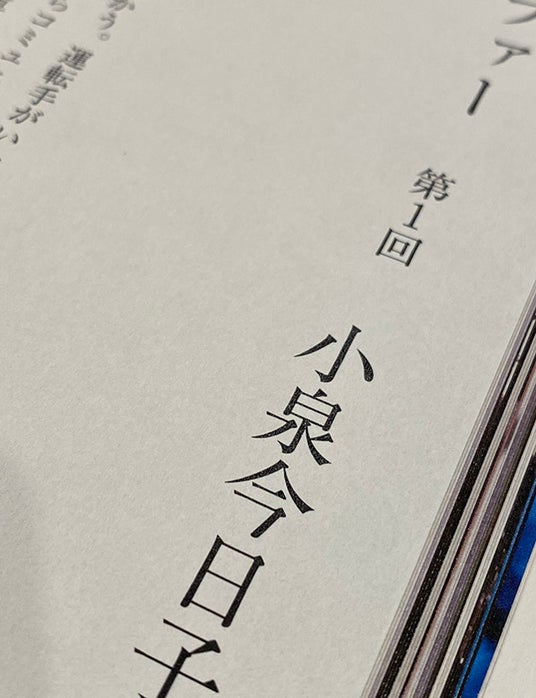 ファー
第1回
小泉今日子
かう。
運転手がい
コミュ